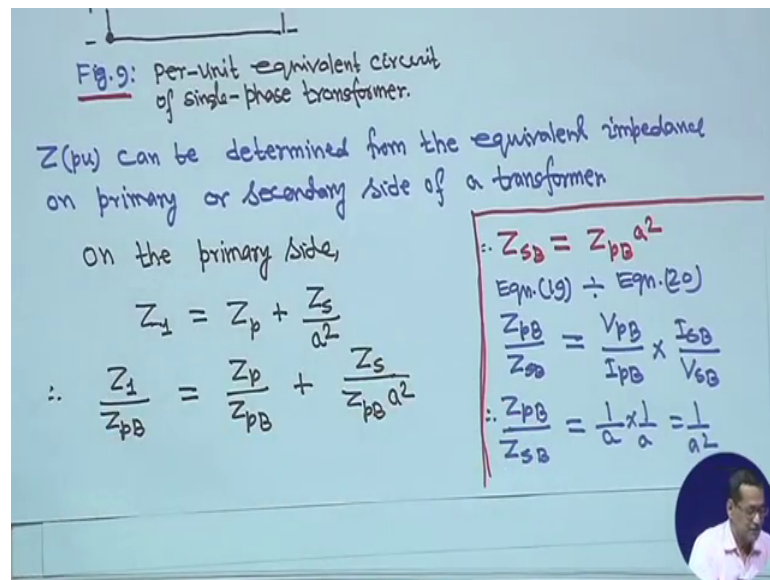 Fig.9: Per-unit equivalent circuit
of single-phase transformer.
Z(pu) can be determined from the equivalent impedance
on primary or secondary side of a transformer
on the primary side,
Z₁ = Zp + Zs/a²
∴ Z₁/ZpB = Zp/ZpB + Zs/(ZpB a²)
∴ ZsB = ZpB a²
Eqn.(19) ÷ Eqn.(20)
ZpB/ZsB = VpB/IpB × IsB/VsB
∴ ZpB/ZsB = 1/a × 1/a = 1/a²